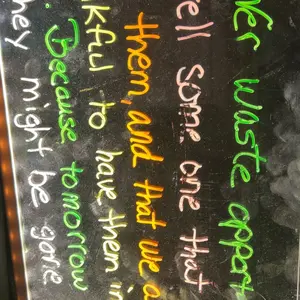 ver waste oppor
ell some one that
them, and that we a
kful to have them in
. Because tomorrow
they might be gone